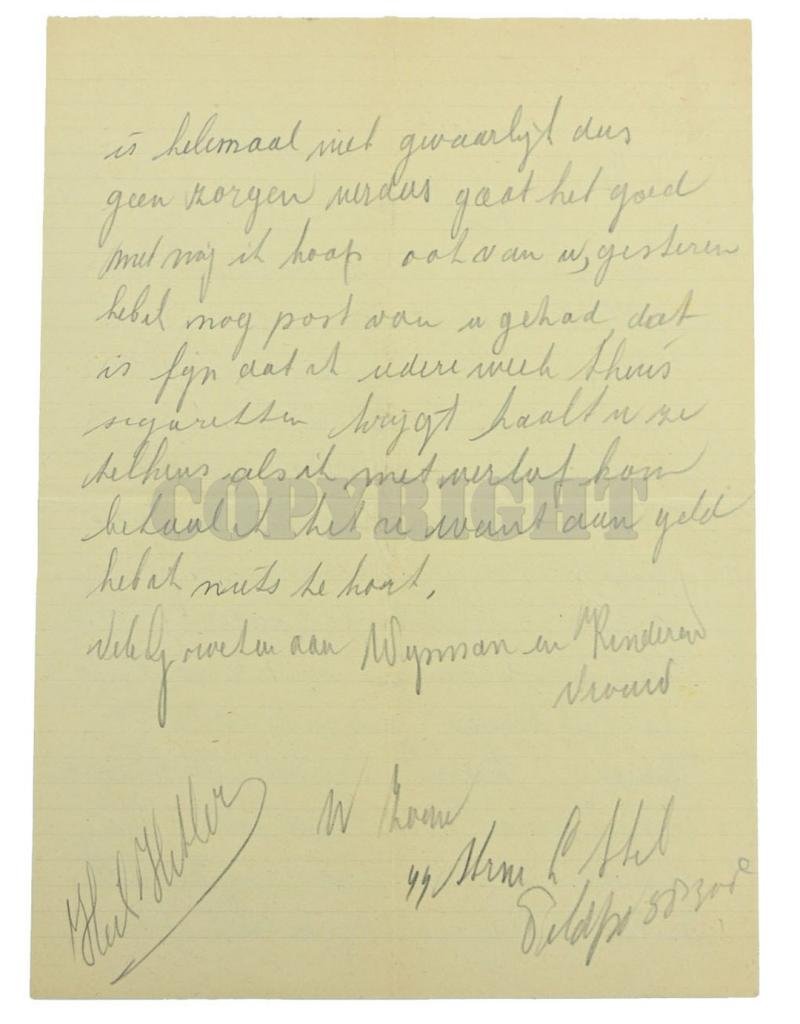 is helemaal niet gevaarlijt dus
geen zorgen verdus gaat het goed
met mij ik hoop ook van u, gisteren
heb ik nog post van u gehad, dat
is fijn dat ik iedere week thuis
sigaretten krijgt haalt u ze
telkens als ik met verlof kom
betaal ik het u want aan geld
heb ik niets te kort,
Vele Groeten aan Wynman en Kinderen
Vrouw
COPYRIGHT
Heil Hitler
W Zoon
SS Strm
Feldpo